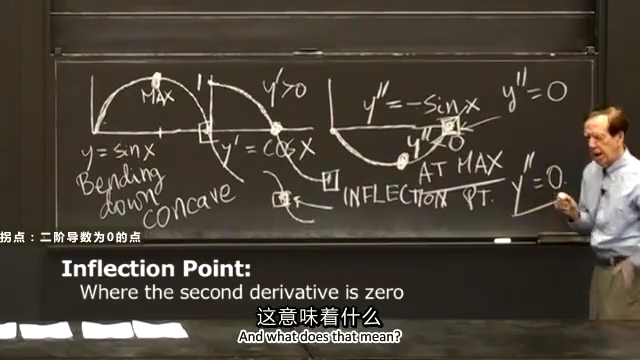 MAX
1
y'>0
y''=-sin x
y''=0
y=sin x
y'=cos x
y''<0
AT MAX
Bending
down
concave
INFLECTION PT.
y''=0
拐点：二阶导数为0的点
Inflection Point:
Where the second derivative is zero
这意味着什么
And what does that mean?